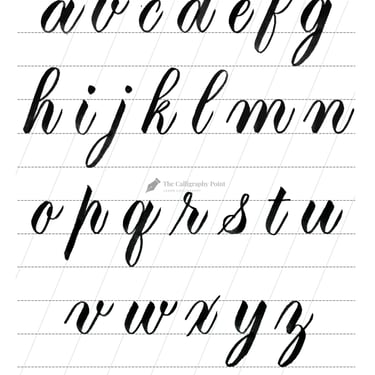 a b c d e f g
h i j k l m n
The Calligraphy Point
o p q r s t u
v w x y z